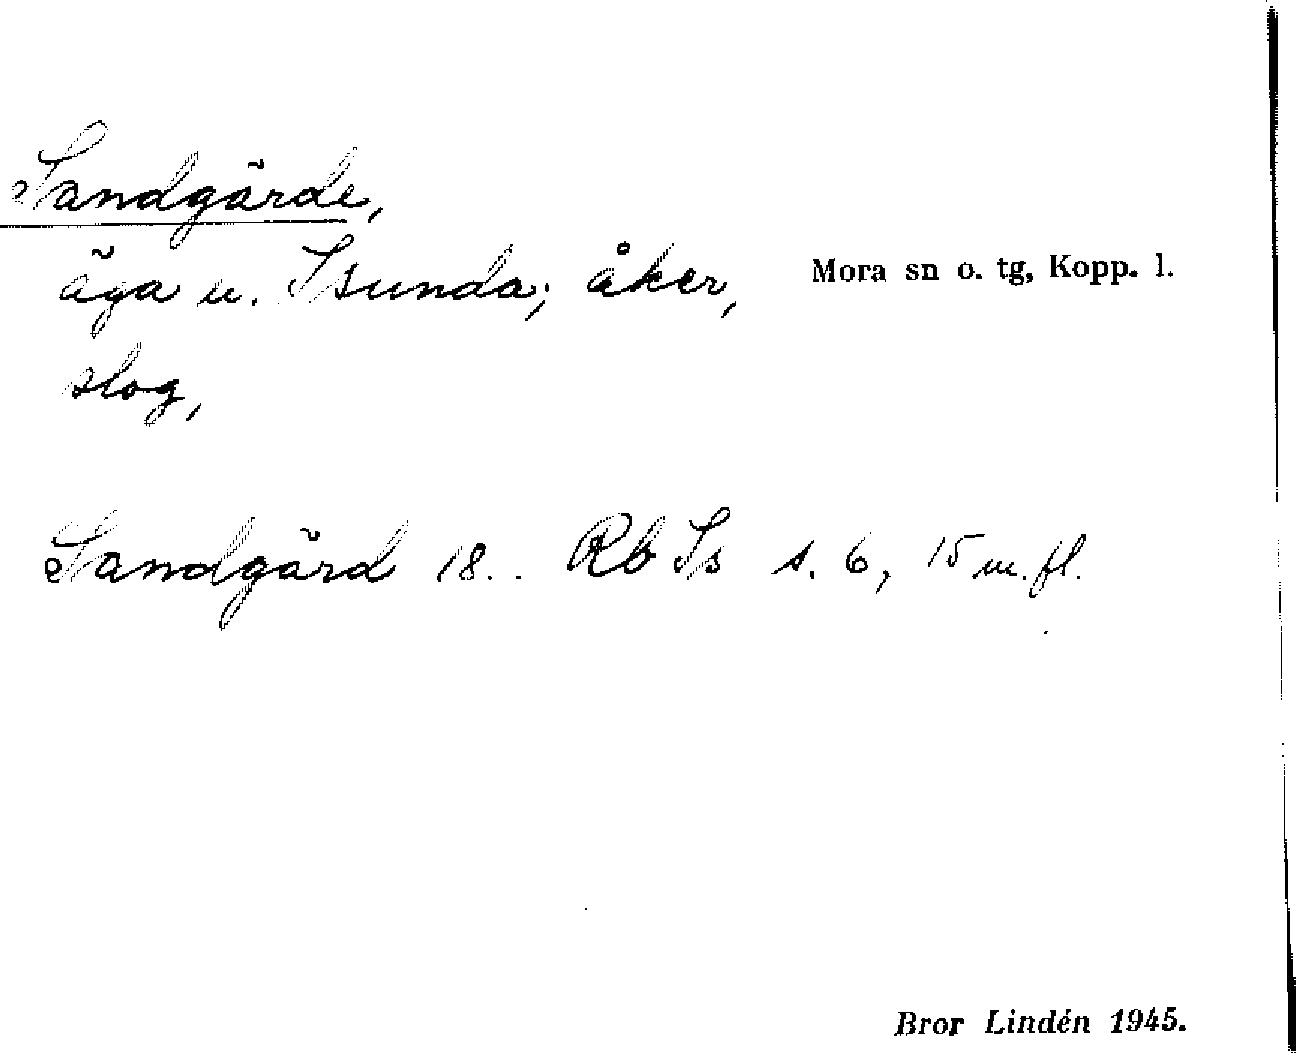 Sandgärde,
äga u. Isunda; åker,
Mora sn o. tg, Kopp. l.
slog,
Sandgärd 18.. Rb Is s. 6, 15 m. fl.
Bror Lindén 1945.